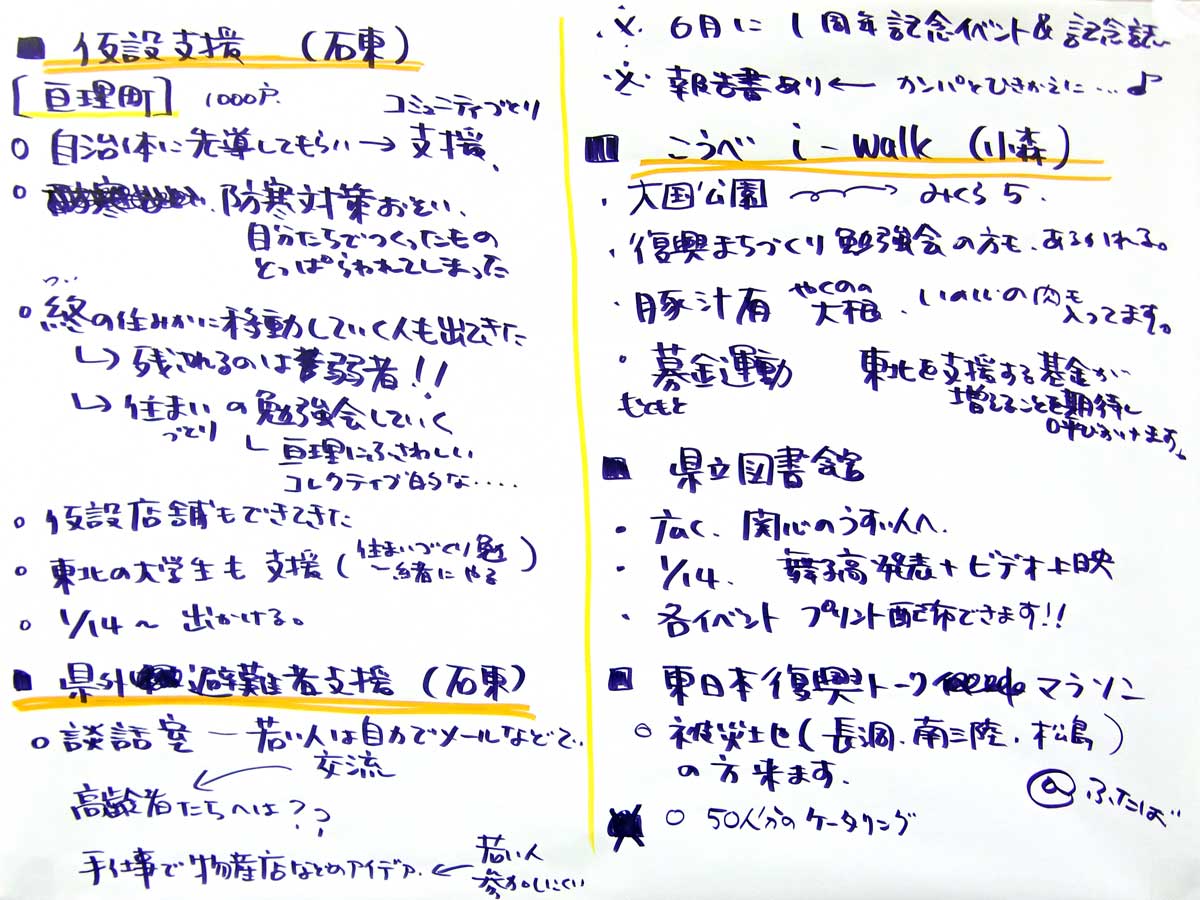 ■ 仮設支援 (石東)
[亘理町] 1000戸 コミュニティづくり
○ 自治体に先導してもらい→支援、
○ 防寒対策おそい、
自分たちでつくったもの
とっぱらわれてしまった
つい
○ 終の住みかに移動していく人も出てきた
↳ 残されるのは弱者!!
↳ 住まいづくりの勉強会していく
└ 亘理にふさわしい
コレクティブ的な・・・・
○ 仮設店舗もできてきた
○ 東北の大学生も支援(住まいづくり勉
一緒にやる)
○ 1/14〜 出かける。
■ 県外避難者支援 (石東)
○ 談話室 ー若い人は自力でメールなどで、
交流
高齢者たちへは??
手仕事で物産店などのアイデア. ← 若い人
参加しにくい
※ 6月に 1周年記念イベント&記念誌
※ 報告書あり← カンパとひきかえに…♪
■ こうべ i-walk (小森)
・大国公園 → みくら5.
・復興まちづくり勉強会の方も、あるかれる。
・豚汁有 やくのの大根、いのししの肉も
入ってます。
・募金運動 東北を支援する基金が
もともと 増えることを期待し
呼びかけます。
■ 県立図書館
・広く、関心のうすい人へ.
・1/14、 舞子高発表+ビデオ上映
・各イベント プリント配布できます!!
■ 東日本復興トークマラソン
○ 被災地(長洞、南三陸、松島)
の方来ます.
@ふたば
○ 50人分のケータリング